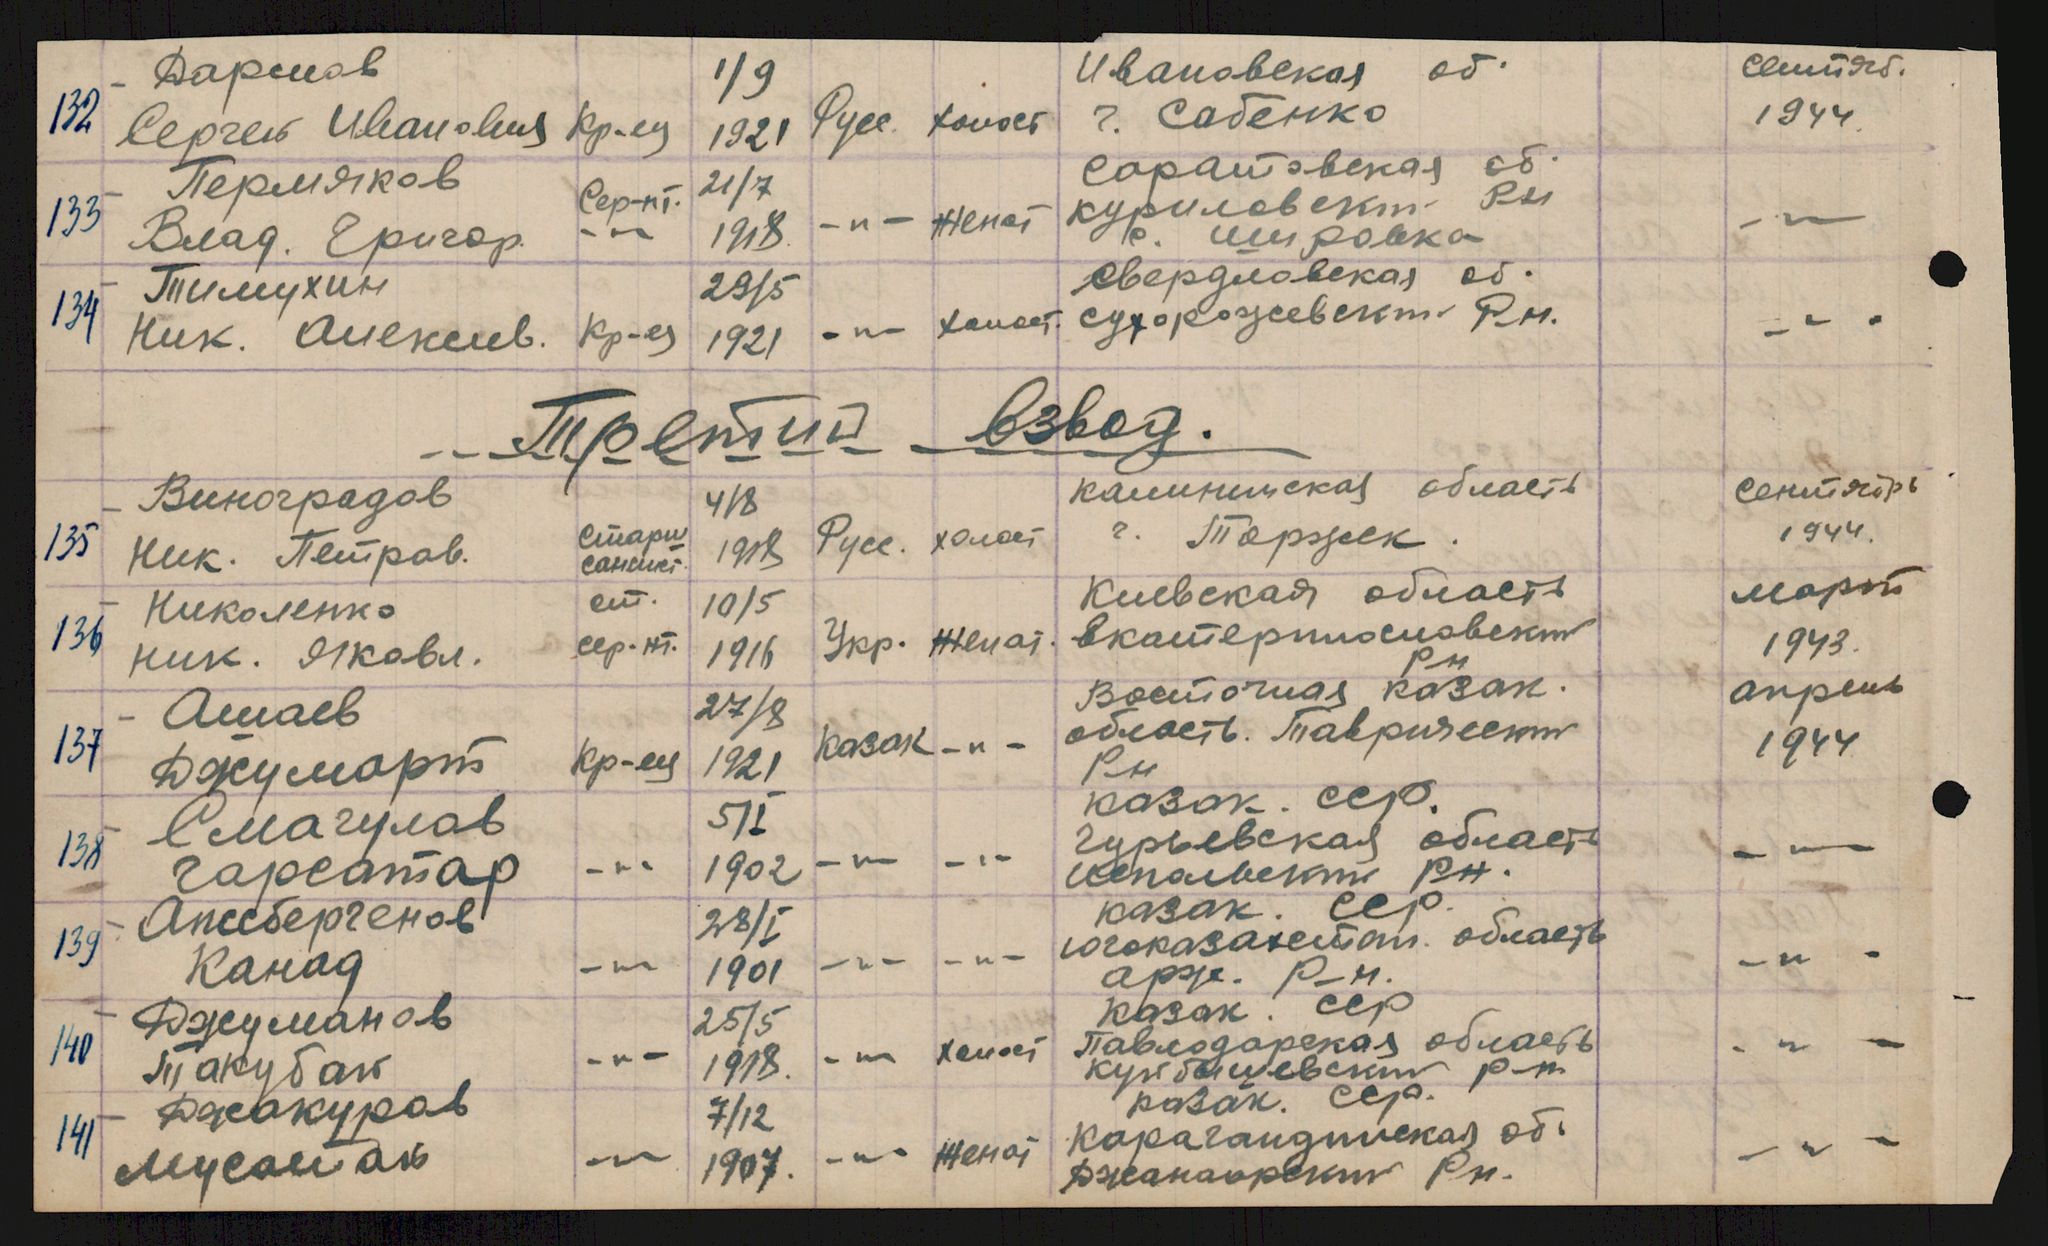 132 - Дармов
Сергей Иванович Кр-ец 1/9 1921 Русс. холост Ивановская об. г. Сабенко сентяб. 1944.
133 - Пермяков
Влад. Григор. Сер-нт. -"- 21/7 1918. -"- Женат Саратовская об. куриловский Рн с. Шировка -"-
134 - Тимухин
Ник. Алексеев. Кр-ец 29/5 1921 -"- холост. свердловская об. сухорожевский Р-н. -"-
Третий взвод.
135 - Виноградов
Ник. Петров. старш сансист. 4/8 1918 Русс. холост калининская область г. Торжек. сентябрь 1944.
136 - Николенко
Ник. Яковл. ст. сер-нт. 10/5 1916 Укр. Женат. Киевская область Р-н март 1943.
137 - Ашаев
Джумарт Кр-ец 27/8 1921 казак -"- Восточная казак. область. Таврический Р-н апрель 1944
138 - Смагулов
Гарсатар -"- 5/I 1902 -"- -"- казак. ССР. Гурьевская область Р-н. -"-
139 - Апсбергенов
Канад -"- 28/I 1901 -"- -"- казак. ССР. югоказахстан. область арж. Р-н. -"-
140 - Джуманов
Такубак -"- 25/5 1918. -"- холост казак. ССР Павлодарская область куйбышевский р-н -"-
141 - Джакуров
Мусатай -"- 7/12 1907. -"- Женат казак. ССР. Карагандинская об. Джанаорский Р-н. -"-